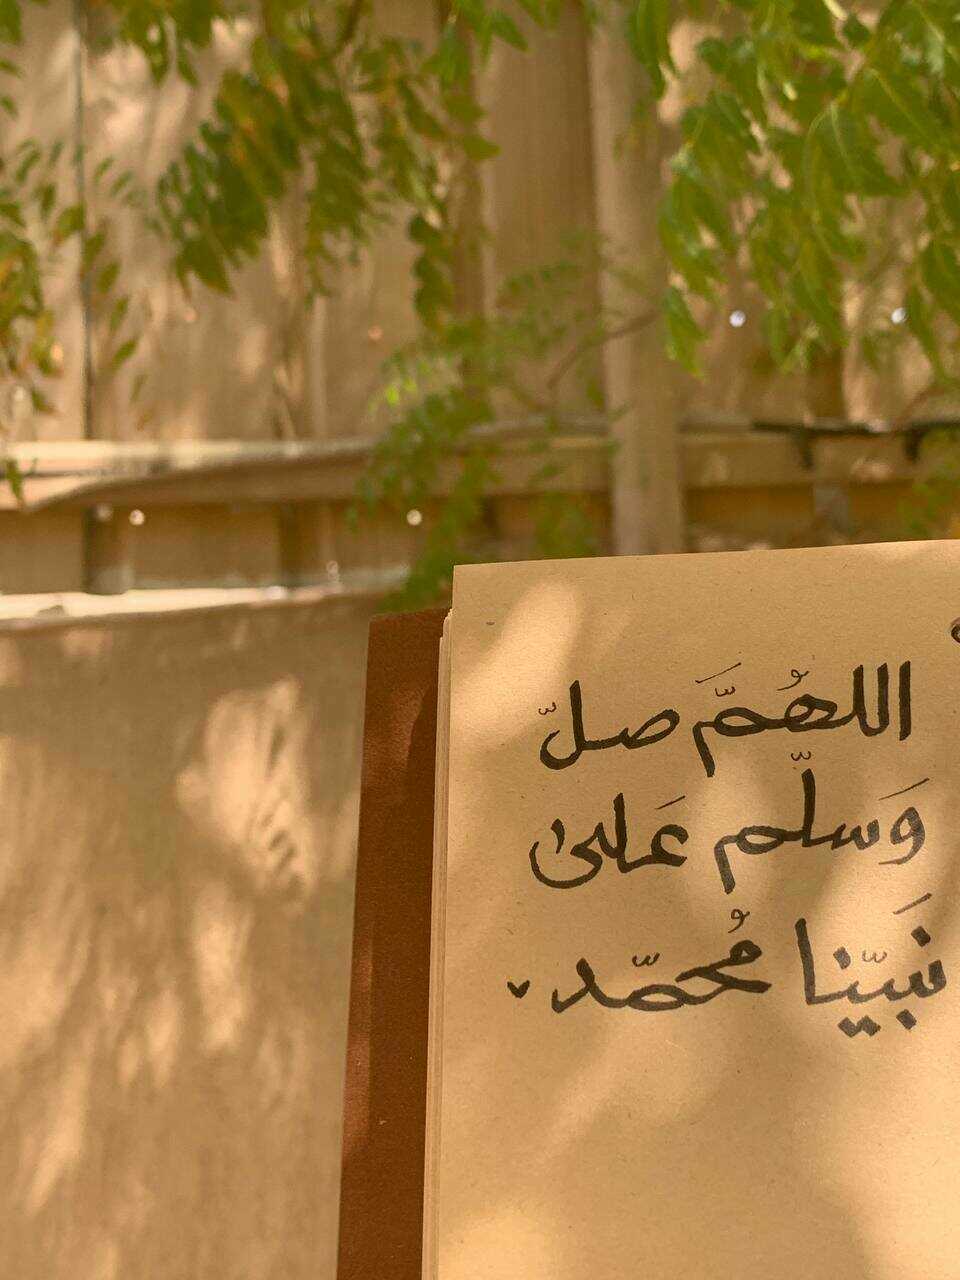 اللهُمَّ صلّ
وَسلّم عَلىٰ
نَبيّنا مُحمّد